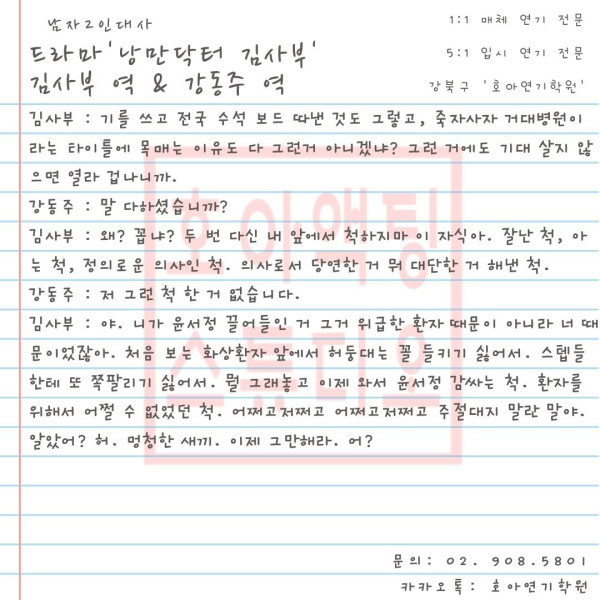 남자2인대사
1:1 매체 연기 전문
드라마'낭만닥터 김사부'
5:1 입시 연기 전문
김사부 역 & 강동주 역
강북구 '호아연기학원'
김사부 : 기를 쓰고 전국 수석 보드 따낸 것도 그렇고, 죽자사자 거대병원이
라는 타이틀에 목매는 이유도 다 그런거 아니겠냐? 그런 거에도 기대 살지 않
으면 열라 겁나니까.
강동주 : 말 다하셨습니까?
김사부 : 왜? 꼽냐? 두 번 다신 내 앞에서 척하지마 이 자식아. 잘난 척, 아
는 척, 정의로운 의사인 척. 의사로서 당연한 거 뭐 대단한 거 해낸 척.
강동주 : 저 그런 척 한 거 없습니다.
김사부 : 야. 니가 윤서정 끌어들인 거 그거 위급한 환자 때문이 아니라 너 때
문이었잖아. 처음 보는 화상환자 앞에서 허둥대는 꼴 들키기 싫어서. 스텝들
한테 또 쪽팔리기 싫어서. 뭘 그래놓고 이제 와서 윤서정 감싸는 척. 환자를
위해서 어쩔 수 없었던 척. 어쩌고저쩌고 어쩌고저쩌고 주절대지 말란 말야.
알았어? 허. 멍청한 새끼. 이제 그만해라. 어?
호아액팅
스튜디오
문의: 02. 908.5801
카카오톡: 호아연기학원